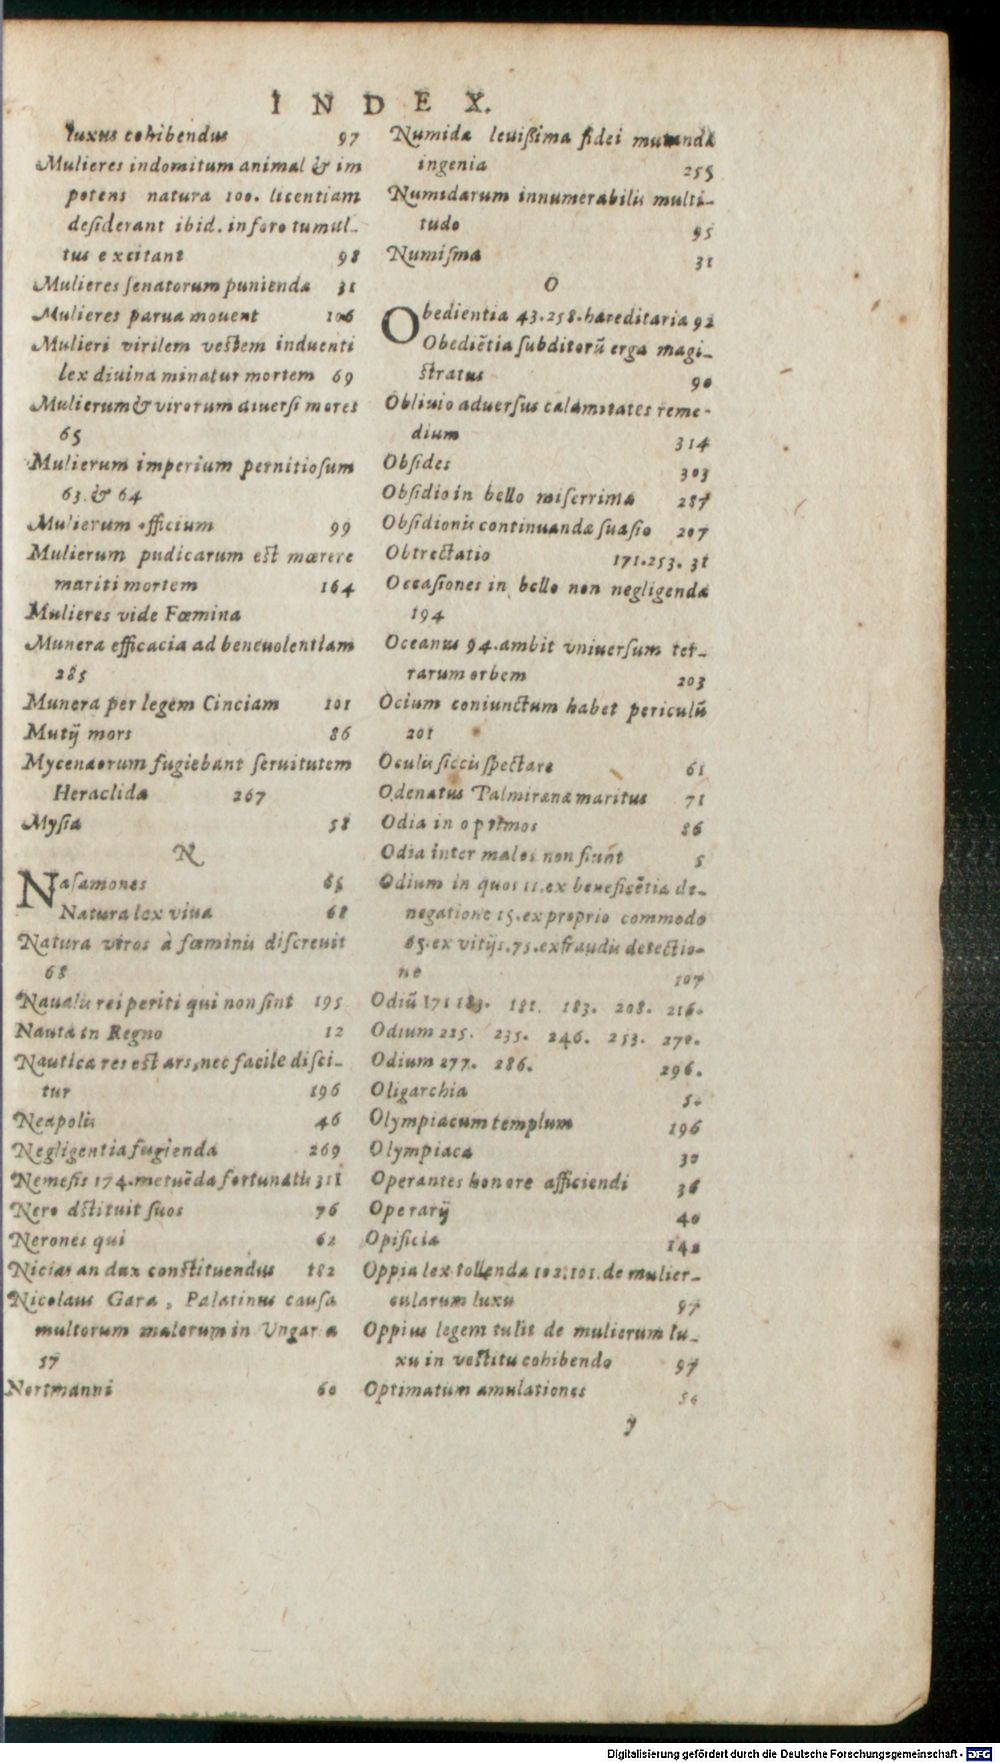 INDEX.
luxus cohibendus 97
Mulieres indomitum animal & im
potens natura 100. licentiam
desiderant ibid. in foro tumul-
tus excitant 98
Mulieres senatorum punienda 31
Mulieres parua mouent 106
Mulieri virilem vestem induenti
lex diuina minatur mortem 69
Mulierum & virorum diuersi mores
65
Mulierum imperium pernitiosum
63. & 64
Mulierum officium 99
Mulierum pudicarum est mœrere
mariti mortem 164
Mulieres vide Fœmina
Munera efficacia ad beneuolentiam
285
Munera per legem Cinciam 101
Mutij mors 86
Mycenæorum fugiebant seruitutem
Heraclidæ 267
Mysia 58
N
Nasamones 65
Natura lex viua 68
Natura viros à fœminis discreuit
68
Naualis rei periti qui non sint 195
Nauta in Regno 12
Nautica res est ars, nec facile disci-
tur 196
Neapolis 46
Negligentia fugienda 269
Nemesis 174. metuēda fortunatis 311
Nero dstituit suos 76
Nerones qui 62
Nicias an dux constituendus 182
Nicolaus Gara, Palatinus causa
multorum malorum in Ungaria
57
Nortmanni 60
Numidæ leuißima fidei mutandæ
ingenia 255
Numidarum innumerabilis multi-
tudo 95
Numisma 31
O
Obedientia 43. 258. hæreditaria 92
Obediētia subditorū erga magi-
stratus 90
Obliuio aduersus calamitates reme-
dium 314
Obsides 303
Obsidio in bello miserrima 287
Obsidionis continuandæ suasio 207
Obtrectatio 171. 253. 31
Occasiones in bello non negligendæ
194
Oceanus 94. ambit vniuersum ter-
rarum orbem 203
Ocium coniunctum habet periculū
201
Oculis siccis spectare 61
Odenatus Palmirenæ maritus 71
Odia in optimos 86
Odia inter malos non fiunt 5
Odium in quos 11. ex beneficētia de-
negatione 15. ex proprio commodo
65. ex vitijs. 75. ex fraudis detectio-
ne 107
Odiū 171 183. 181. 183. 208. 216.
Odium 225. 235. 246. 253. 270.
Odium 277. 286. 296.
Oligarchia 5.
Olympiacum templum 196
Olympiaca 30
Operantes honore afficiendi 36
Operarij 40
Opificia 142
Oppia lex tollenda 102. 101. de mulier-
cularum luxu 97
Oppius legem tulit de mulierum lu-
xu in vestitu cohibendo 97
Optimatum æmulationes 56
y
Digitalisierung gefördert durch die Deutsche Forschungsgemeinschaft - DFG